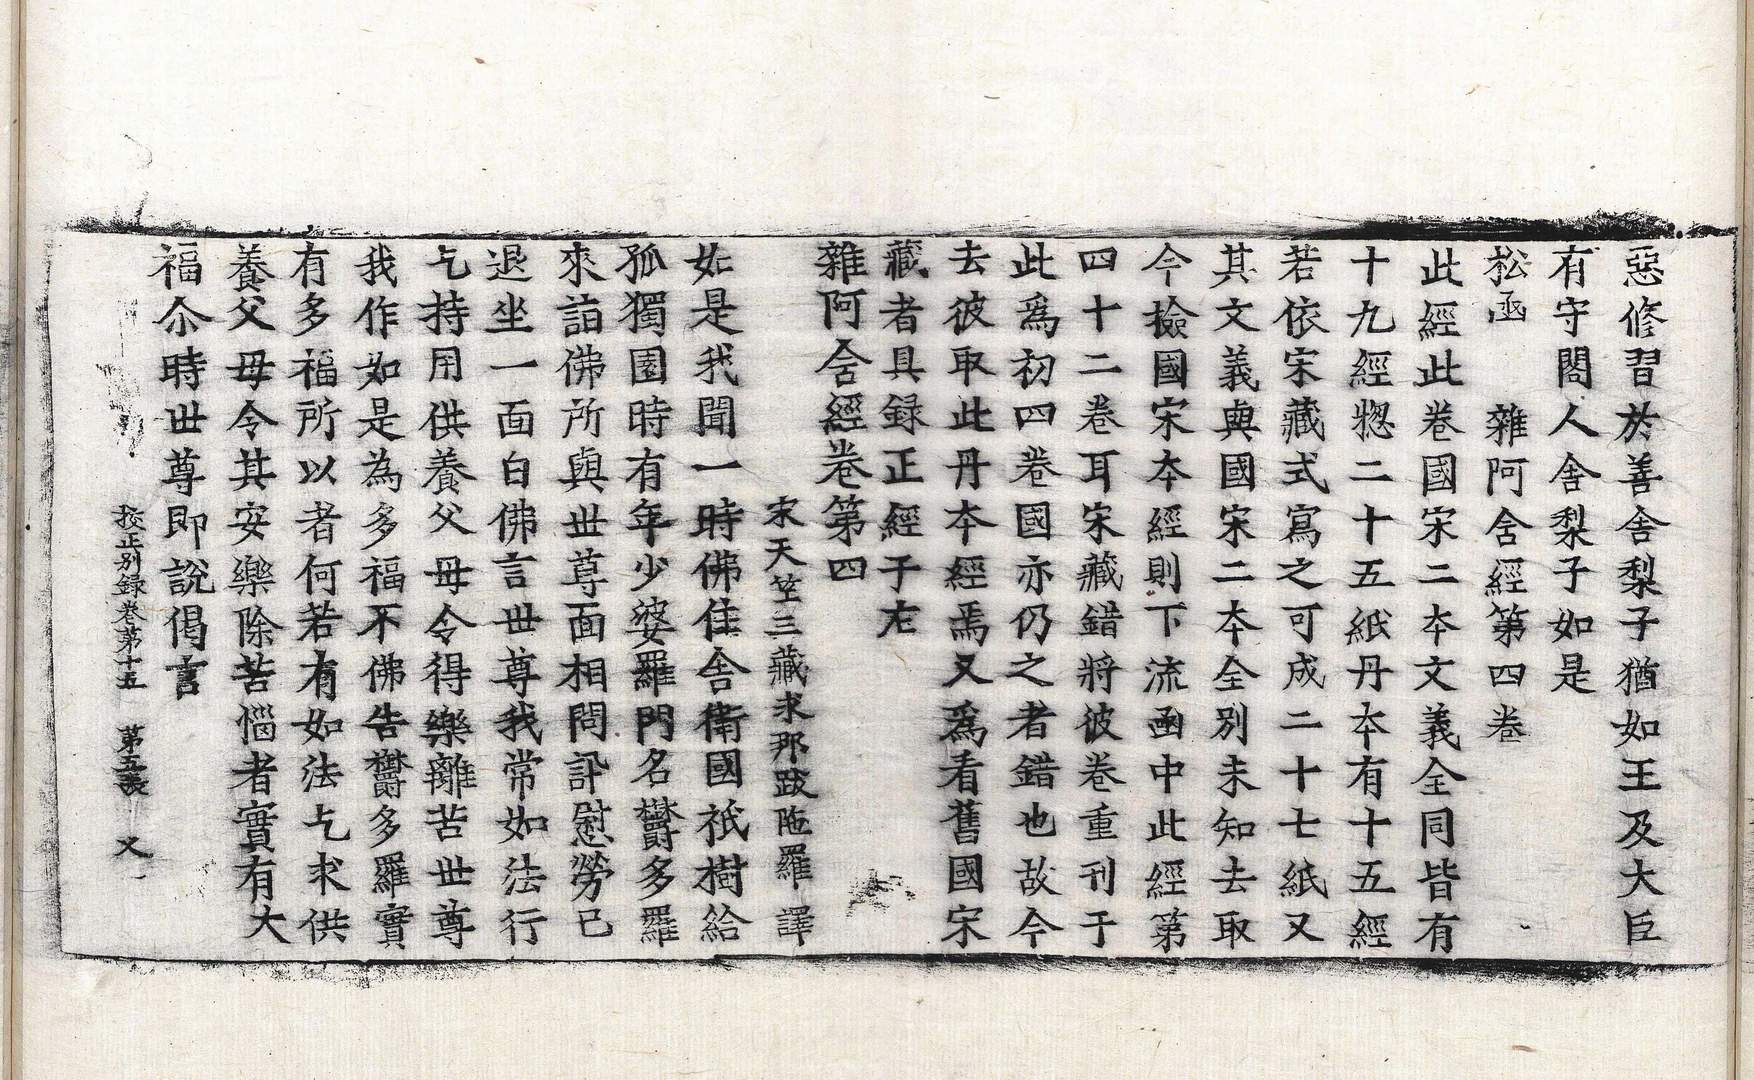 惡修習於善舍梨子猶如王及大臣
有守閤人舍梨子如是
松函　雜阿含經第四卷
此經此卷國宋二本文義全同皆有
十九經惣二十五紙丹本有十五經
若依宋藏式寫之可成二十七紙又
其文義與國宋二本全別未知去取
今撿國宋本經則下流凾中此經第
四十二卷耳宋藏錯將彼卷重刊于
此爲初四卷國亦仍之者錯也故今
去彼取此丹本經焉又爲看舊國宋
藏者具録正經于左
雜阿含經卷第四
宋天竺三藏求那跋陁羅譯
如是我聞一時佛住舍衛國祇樹給
孤獨園時有年少婆羅門名欝多羅
來詣佛所與世尊面相問訊慰勞已
退坐一面白佛言世尊我常如法行
乞持用供養父母令得樂離苦世尊
我作如是為多福不佛告欝多羅實
有多福所以者何若有如法乞求供
養父母令其安樂除苦惱者實有大
福尒時世尊即說偈言
挍正別録卷第十五　第五張　又